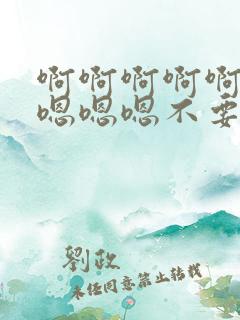 啊啊啊啊啊
嗯嗯嗯不要
劉政
未经同意禁止转载